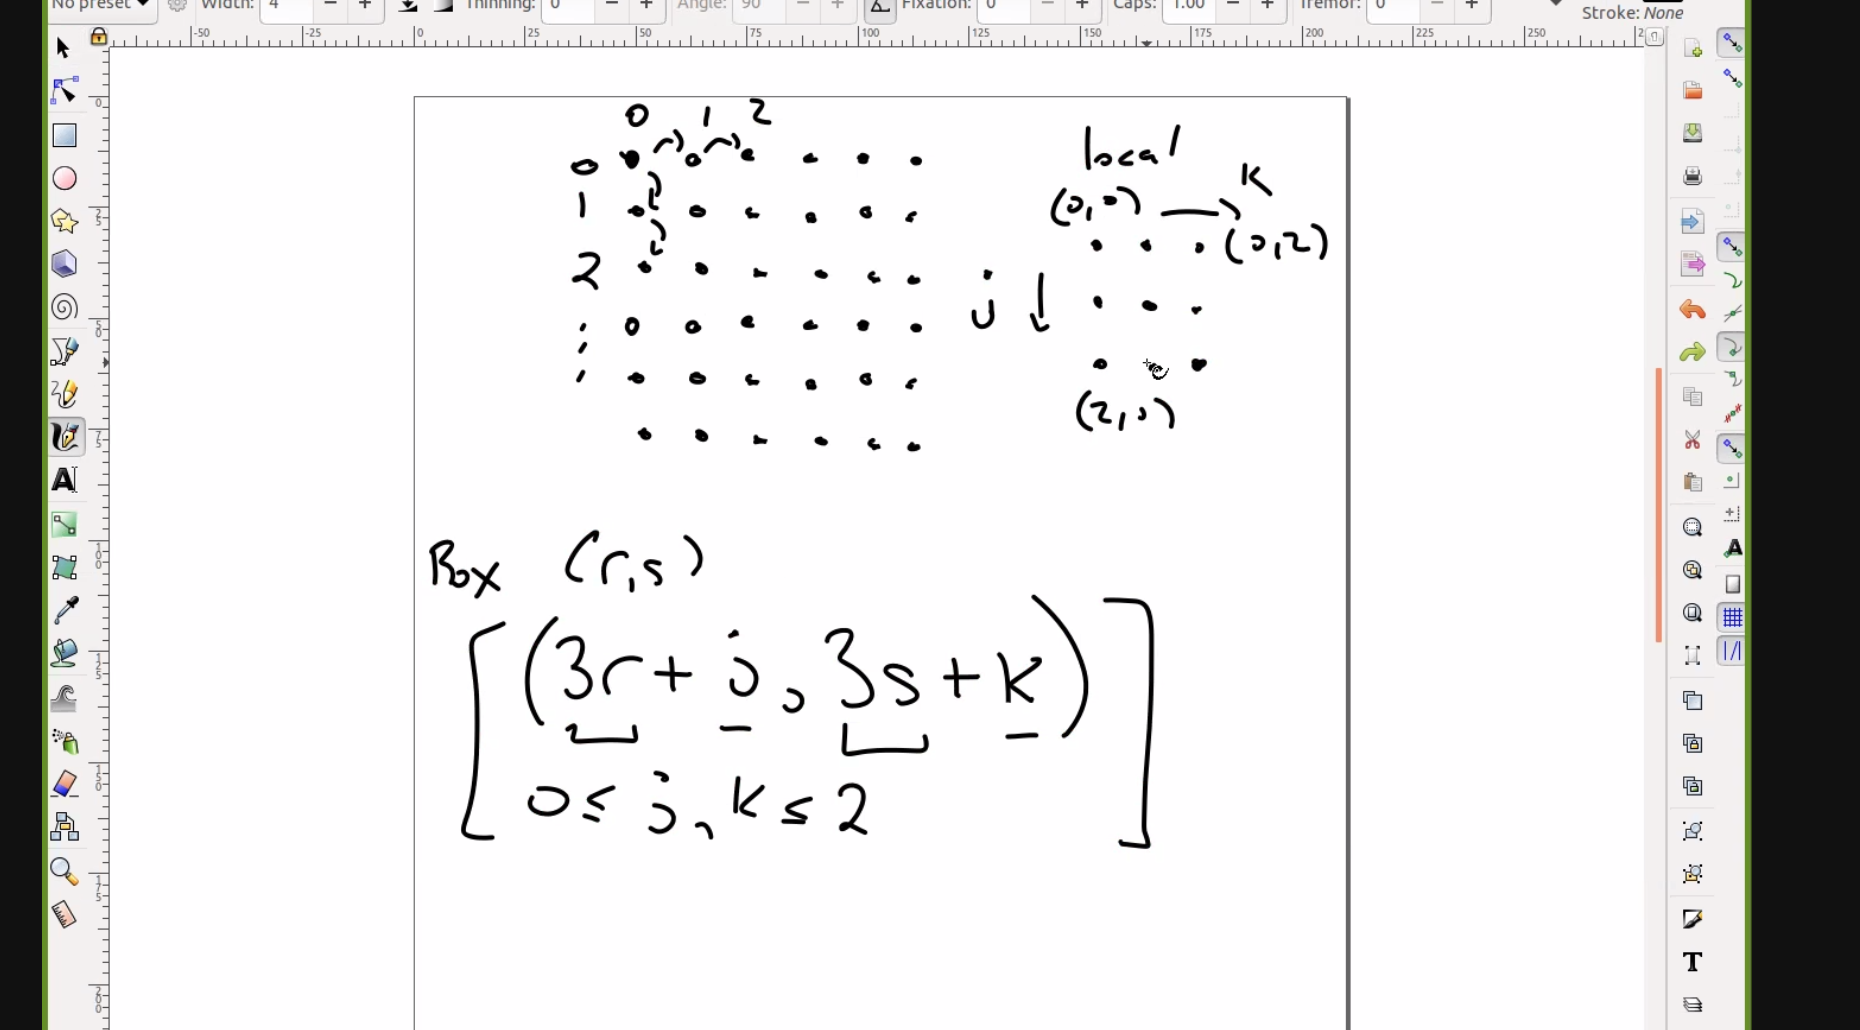 No preset Width: 4 Thinning: 0 Angle: 90 Fixation: 0 Caps: 1.00 Tremor: 0 Stroke: None
-50 -25 0 25 50 75 100 125 150 175 200 225 250
0 1 2
0
1
2
local
(0,0) k
(0,2)
j
(2,0)
Box (r,s)
[(3r + j, 3s + k)
0 ≤ j, k ≤ 2]